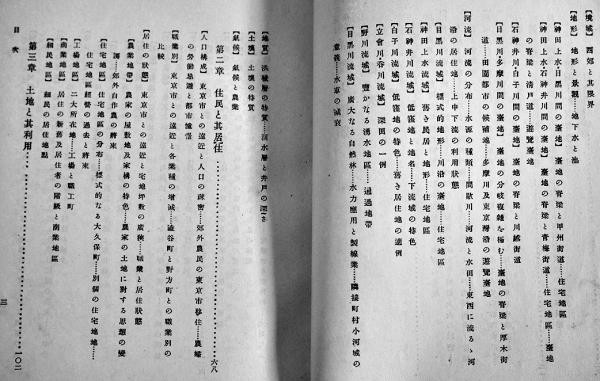 【境域】 西郊と其限界
【地形】 地形と景觀……地下水と池
神田上水・目黒川間の臺地】 臺地の脊梁と甲州街道……住宅地區
神田上水・石神井川間の臺地】 臺地の脊梁と青梅街道……住宅地區……臺地
の脊梁と清戸道……遊覽臺地
石神井川・白子川間の臺地】 臺地の脊梁と川越街道
目黒川・多摩川間の臺地】 臺地の分岐複雜を極む……臺地の脊梁と厚木街
道……田園都市の候補地……多摩川及東京灣沿の遊覽臺地
【河流】 河流の分布……水源の種類……間歇川……河流と水田……東西に流るゝ河
沿の居住地……上中下流の利用狀態
【目黒川流域】 標式的地形……川沿の臺地……住宅地區
神田上水流域】 舊き民居と地形……住宅地區
石神井川流域】 低窪地と地名……下流域の特色
白子川流域】 低窪地の特色……舊き居住地の適例
立會川呑川流域】 深田の一例
野川流域】 豐かなる湧水地區……過渡地帶
【目黒川流域】 廣大なる自然林……水力應用と製線業……隣接町村小河域の
意義……水車の減衰
【地質】 洪積層の特質……洞水層と井戸の深さ
【土壤】 土壤の特質
【氣候】 氣候と農業
第二章 住民と其居住……六八
【人口構成】 東京市との遠近と人口の疎密……郊外農民の東京市移住……農婦
の勞働忌避と都市憧憬
【職業別】 東京市との遠近と各業種の增減……澁谷町と野方町との職業別の
比較
【居住の狀態】 東京市との遠近と宅地坪數の廣狹……職業と居住狀態
【農業地帶】 農家の屋敷地及家構の特色……農家の土地に對する思想の變
調……郊外自作農の將來
【住宅地區】 住宅地區の分布……標式的なる大久保町……別個の住宅地地……
住宅地區經營の過去と將來
【工場地區】 二大所在地……工場と職工町
【商業地區】 居住の新舊及居住者の階級と商業地區
【細民地區】 細民の居住地點
第三章 土地と其利用……一〇二
目次
三